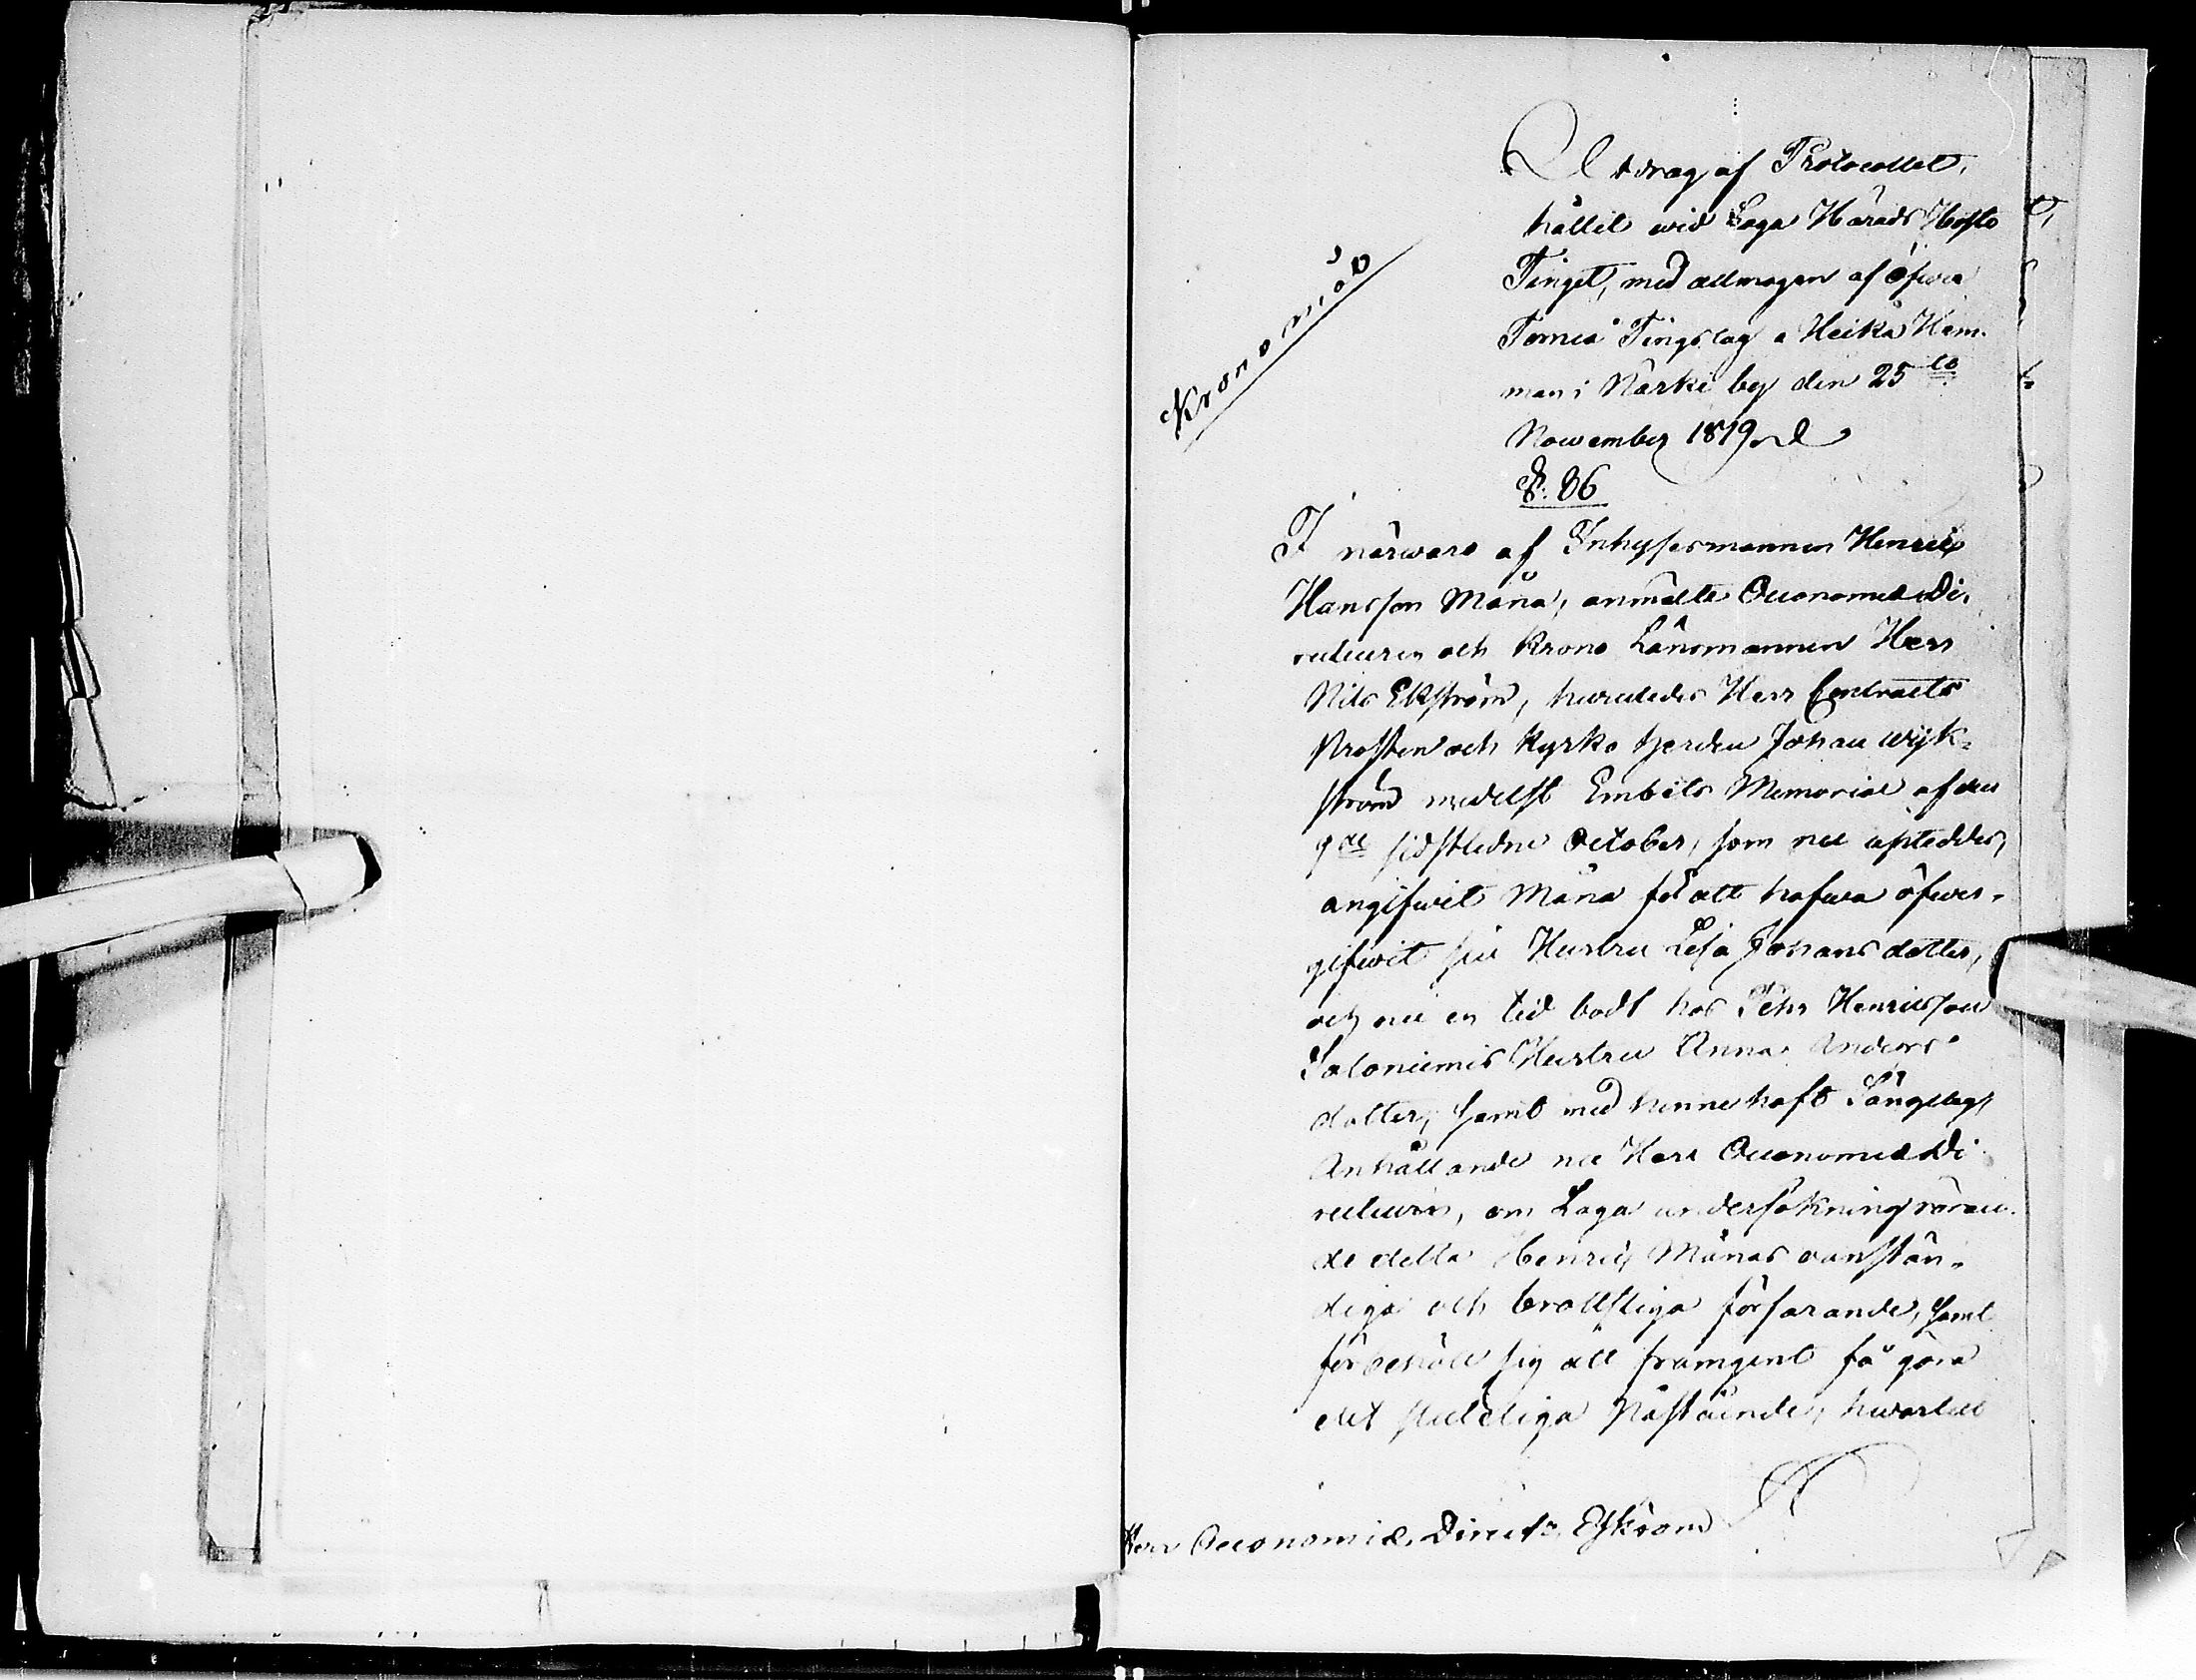 Utdrag af Protocollet,
hållit wid Laga Härads Höste
Tinget, med allmogen af Öfwer
Torneå Tingslag å Heikå Hem¬
man i Närki by den 25te
November 1819.
§. 86
Krono mål
I närvaro af Inhysesmannen Henric
Hansson Mäna, anmälte Oeconomiæ Di¬
recteuren och Krono Länsmannen Herr
Nils Ekström, huruledes Herr Contracts
Prosten och Kyrko herden Johan Wijk¬
ström medelst Embets Memorial af den
9de sidstledne October, som nu upteddes,
angifwit Mäna för att hafwa öfwer¬
gifwit sin Hustru Lisa Johansdotter,
och nu en tid bodt hos Pehr Henricsson
Saloniemis Hustru Anna Anders
dotter, samt med henne haft Sänglag,
Anhållande nu Herr Oeconomiæ Di¬
recteuren, om Laga undersökning röran¬
de detta Henric Mänas oanstän¬
diga och brottsliga förfarande, samt
förbehöll sig att framgent få göra
det slutliga Påstående, hwartill
Herr Oeconomiæ. Direct: Ekström